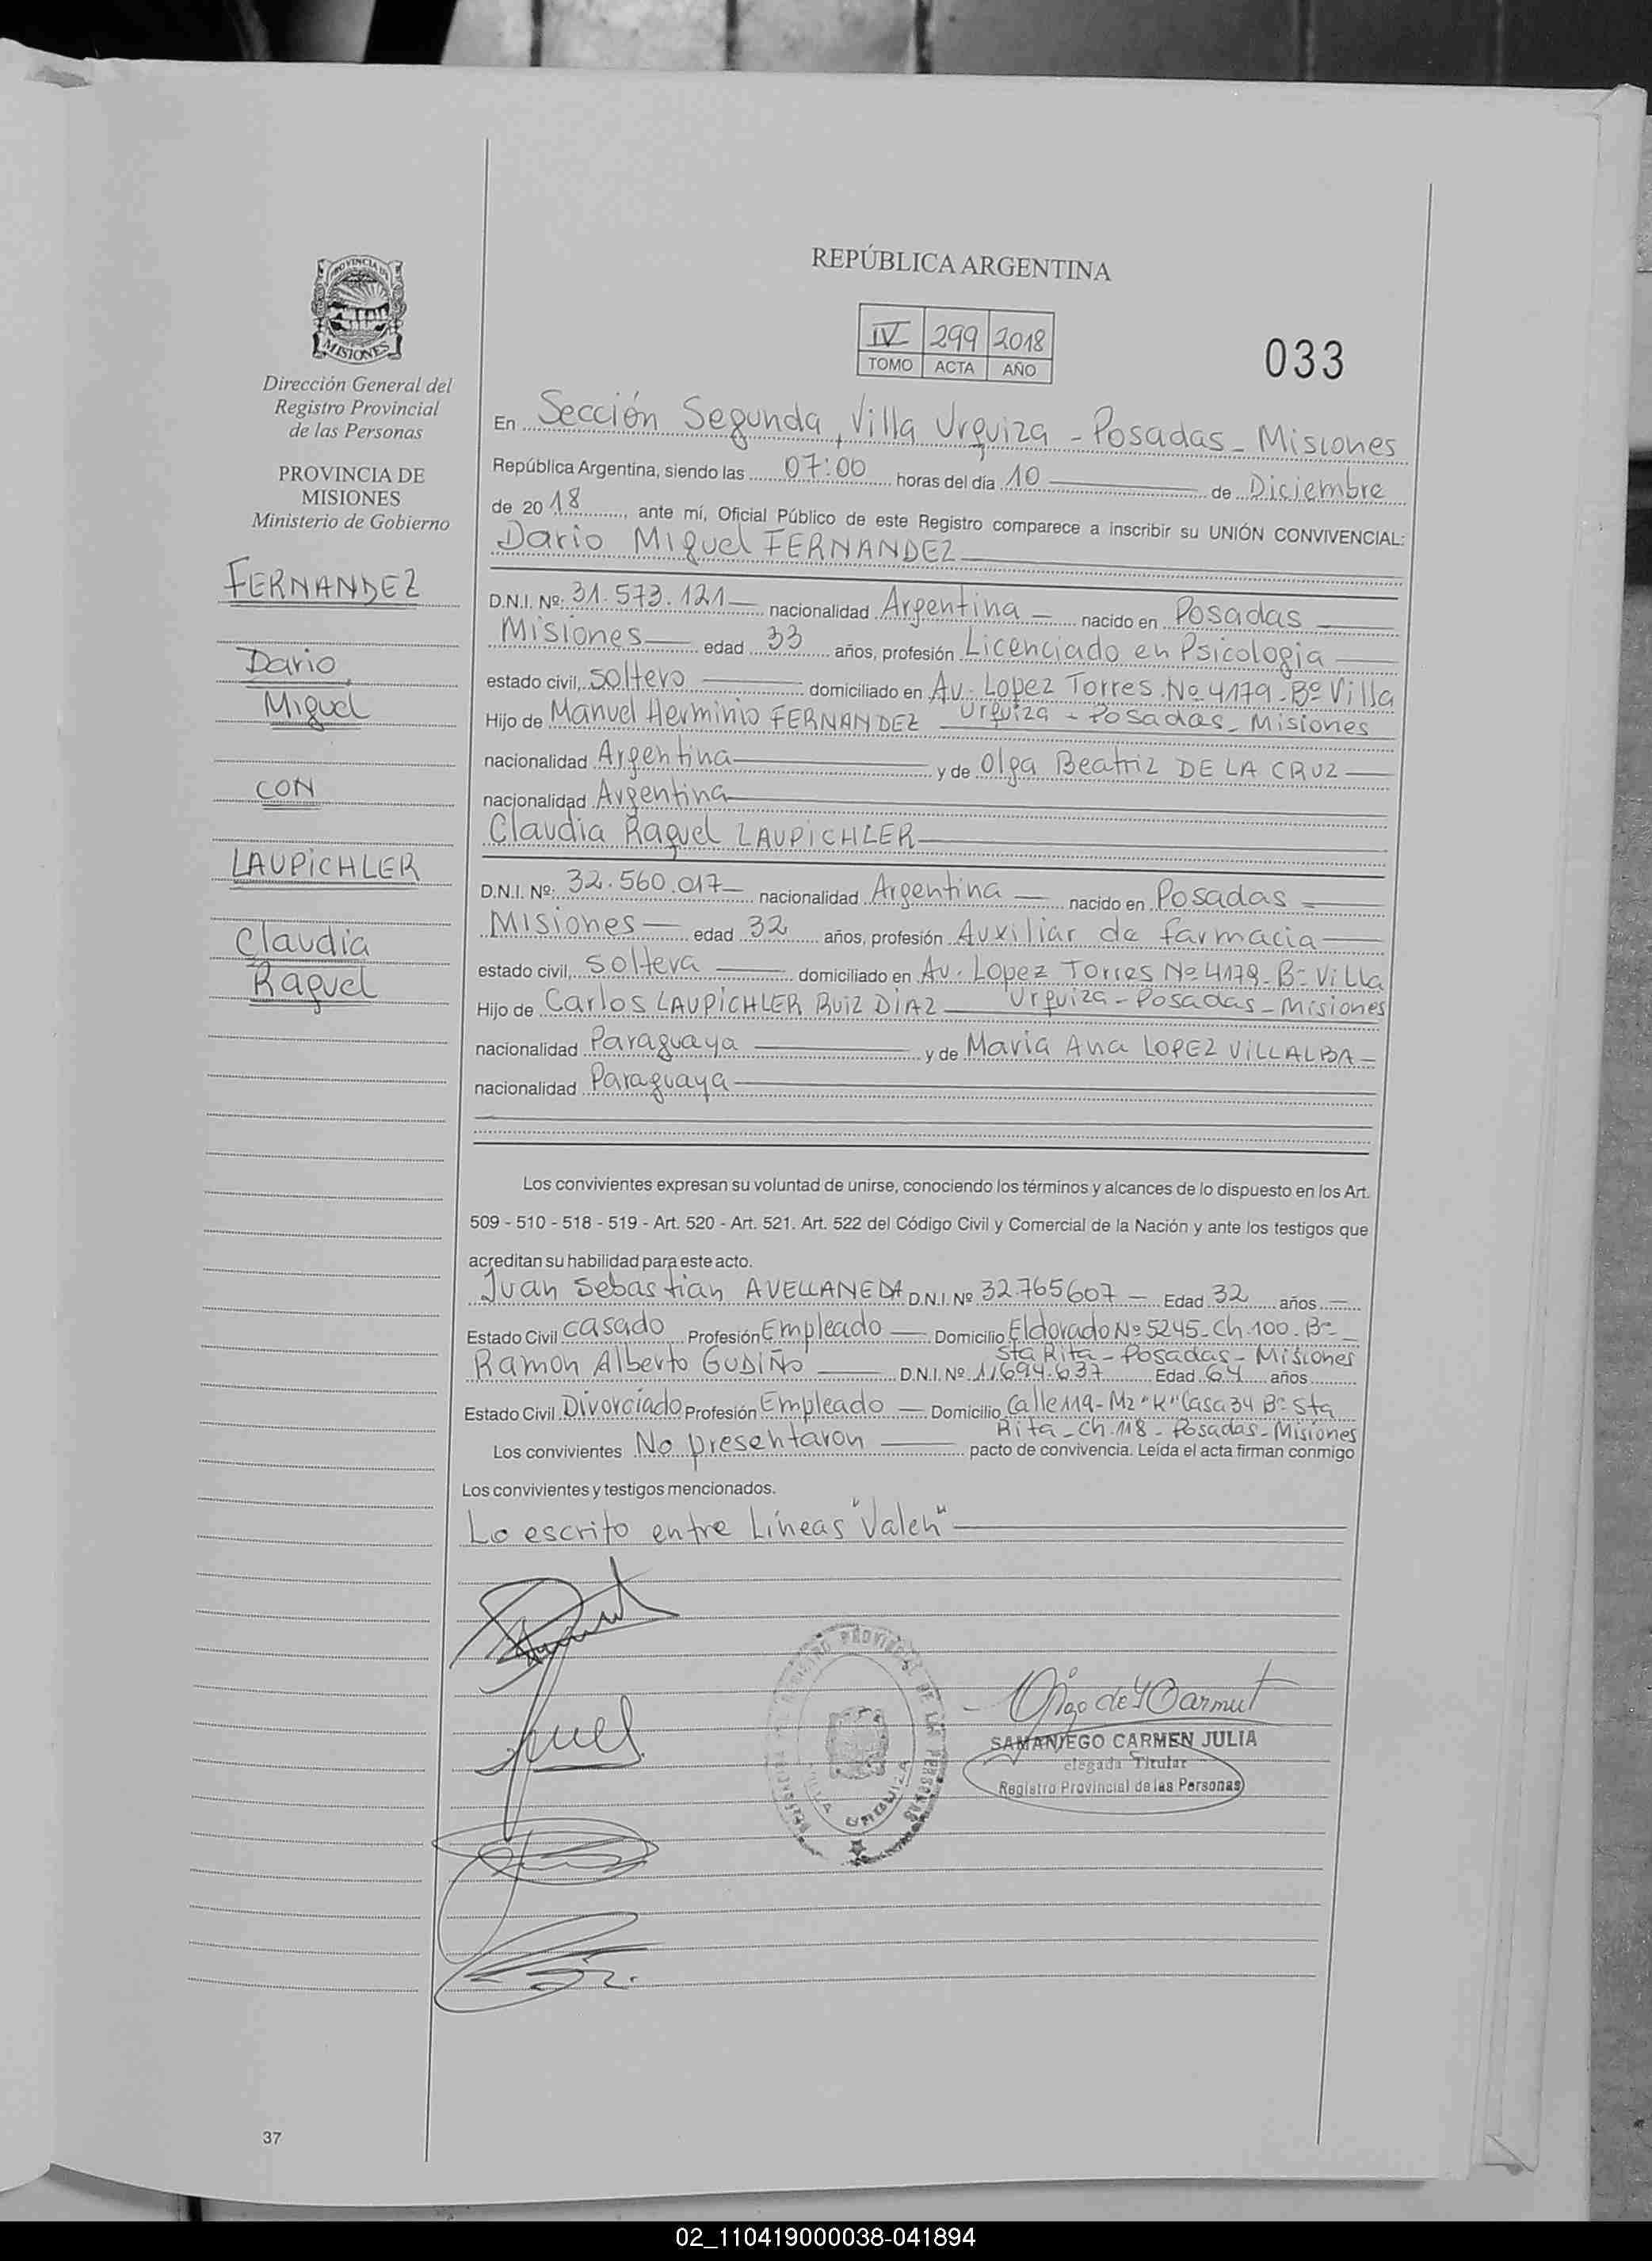 REPÚBLICA ARGENTINA
PROVINCIA DE
MISIONES
IV 299 2018
TOMO ACTA AÑO
033
Dirección General del
Registro Provincial
de las Personas
PROVINCIA DE
MISIONES
Ministerio de Gobierno
FERNANDEZ
Dario
Miguel
CON
LAUPICHLER
Claudia
Raquel
En Sección Segunda, Villa Urquiza - Posadas - Misiones
República Argentina, siendo las 07:00 horas del día 10 de Diciembre
de 2018, ante mí, Oficial Público de este Registro comparece a inscribir su UNIÓN CONVIVENCIAL:
Dario Miguel FERNANDEZ
D.N.I. Nº: 31.573.121 nacionalidad Argentina nacido en Posadas
Misiones edad 33 años, profesión Licenciado en Psicologia
estado civil, soltero domiciliado en Av. Lopez Torres Nº 4179 - Bº Villa
Urquiza - Posadas - Misiones
Hijo de Manuel Herminio FERNANDEZ
nacionalidad Argentina y de Olga Beatriz DE LA CRUZ
nacionalidad Argentina
Claudia Raquel LAUPICHLER
D.N.I. Nº: 32.560.017 nacionalidad Argentina nacido en Posadas
Misiones edad 32 años, profesión Auxiliar de farmacia
estado civil, soltera domiciliado en Av. Lopez Torres Nº 4179 - Bº Villa
Urquiza - Posadas - Misiones
Hijo de Carlos LAUPICHLER RUIZ DIAZ
nacionalidad Paraguaya y de Maria Ana LOPEZ VILLALBA
nacionalidad Paraguaya
Los convivientes expresan su voluntad de unirse, conociendo los términos y alcances de lo dispuesto en los Art.
509 - 510 - 518 - 519 - Art. 520 - Art. 521. Art. 522 del Código Civil y Comercial de la Nación y ante los testigos que
acreditan su habilidad para este acto.
Juan Sebastian AVELLANEDA D.N.I. Nº 32.765607 Edad 32 años
Estado Civil casado Profesión Empleado Domicilio Eldorado Nº 5245 - Ch. 100 - Bº
Sta Rita - Posadas - Misiones
Ramon Alberto GUDIÑO D.N.I. Nº 11.694.637 Edad 64 años
Estado Civil Divorciado Profesión Empleado Domicilio Calle 119 - Mz "K" Casa 34 Bº Sta
Rita - Ch. 118 - Posadas - Misiones
Los convivientes No presentaron pacto de convivencia. Leída el acta firman conmigo
Los convivientes y testigos mencionados.
Lo escrito entre Líneas "Valen"
SAMANIEGO CARMEN JULIA
elegada Titular
Registro Provincial de las Personas
VILLA URQUIZA
37
02_110419000038-041894